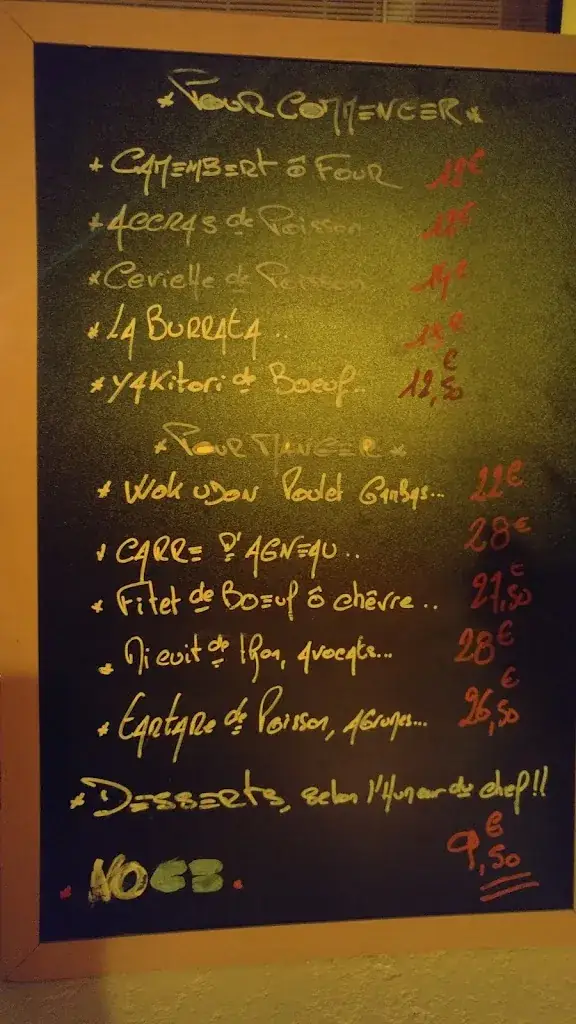 * POUR COMMENCER *
* CAMEMBERT ô FOUR
* ACCRAS de Poisson
* Ceviche de Poisson
* LA BURRATA ..
* YAKitori de Boeuf.. 12,50€
* POUR MANGER *
* Wok UDON Poulet GAMBAS... 22€
* CARRE D'AGNEAU.. 28€
* Filet de Boeuf ô chêvre.. 27,50€
* Micuit de thon, Avocats... 28€
* TARTARe de Poisson, Agrumes... 26,50€
* DESSERTS, selon l'Humeur du chef!!
9,50€